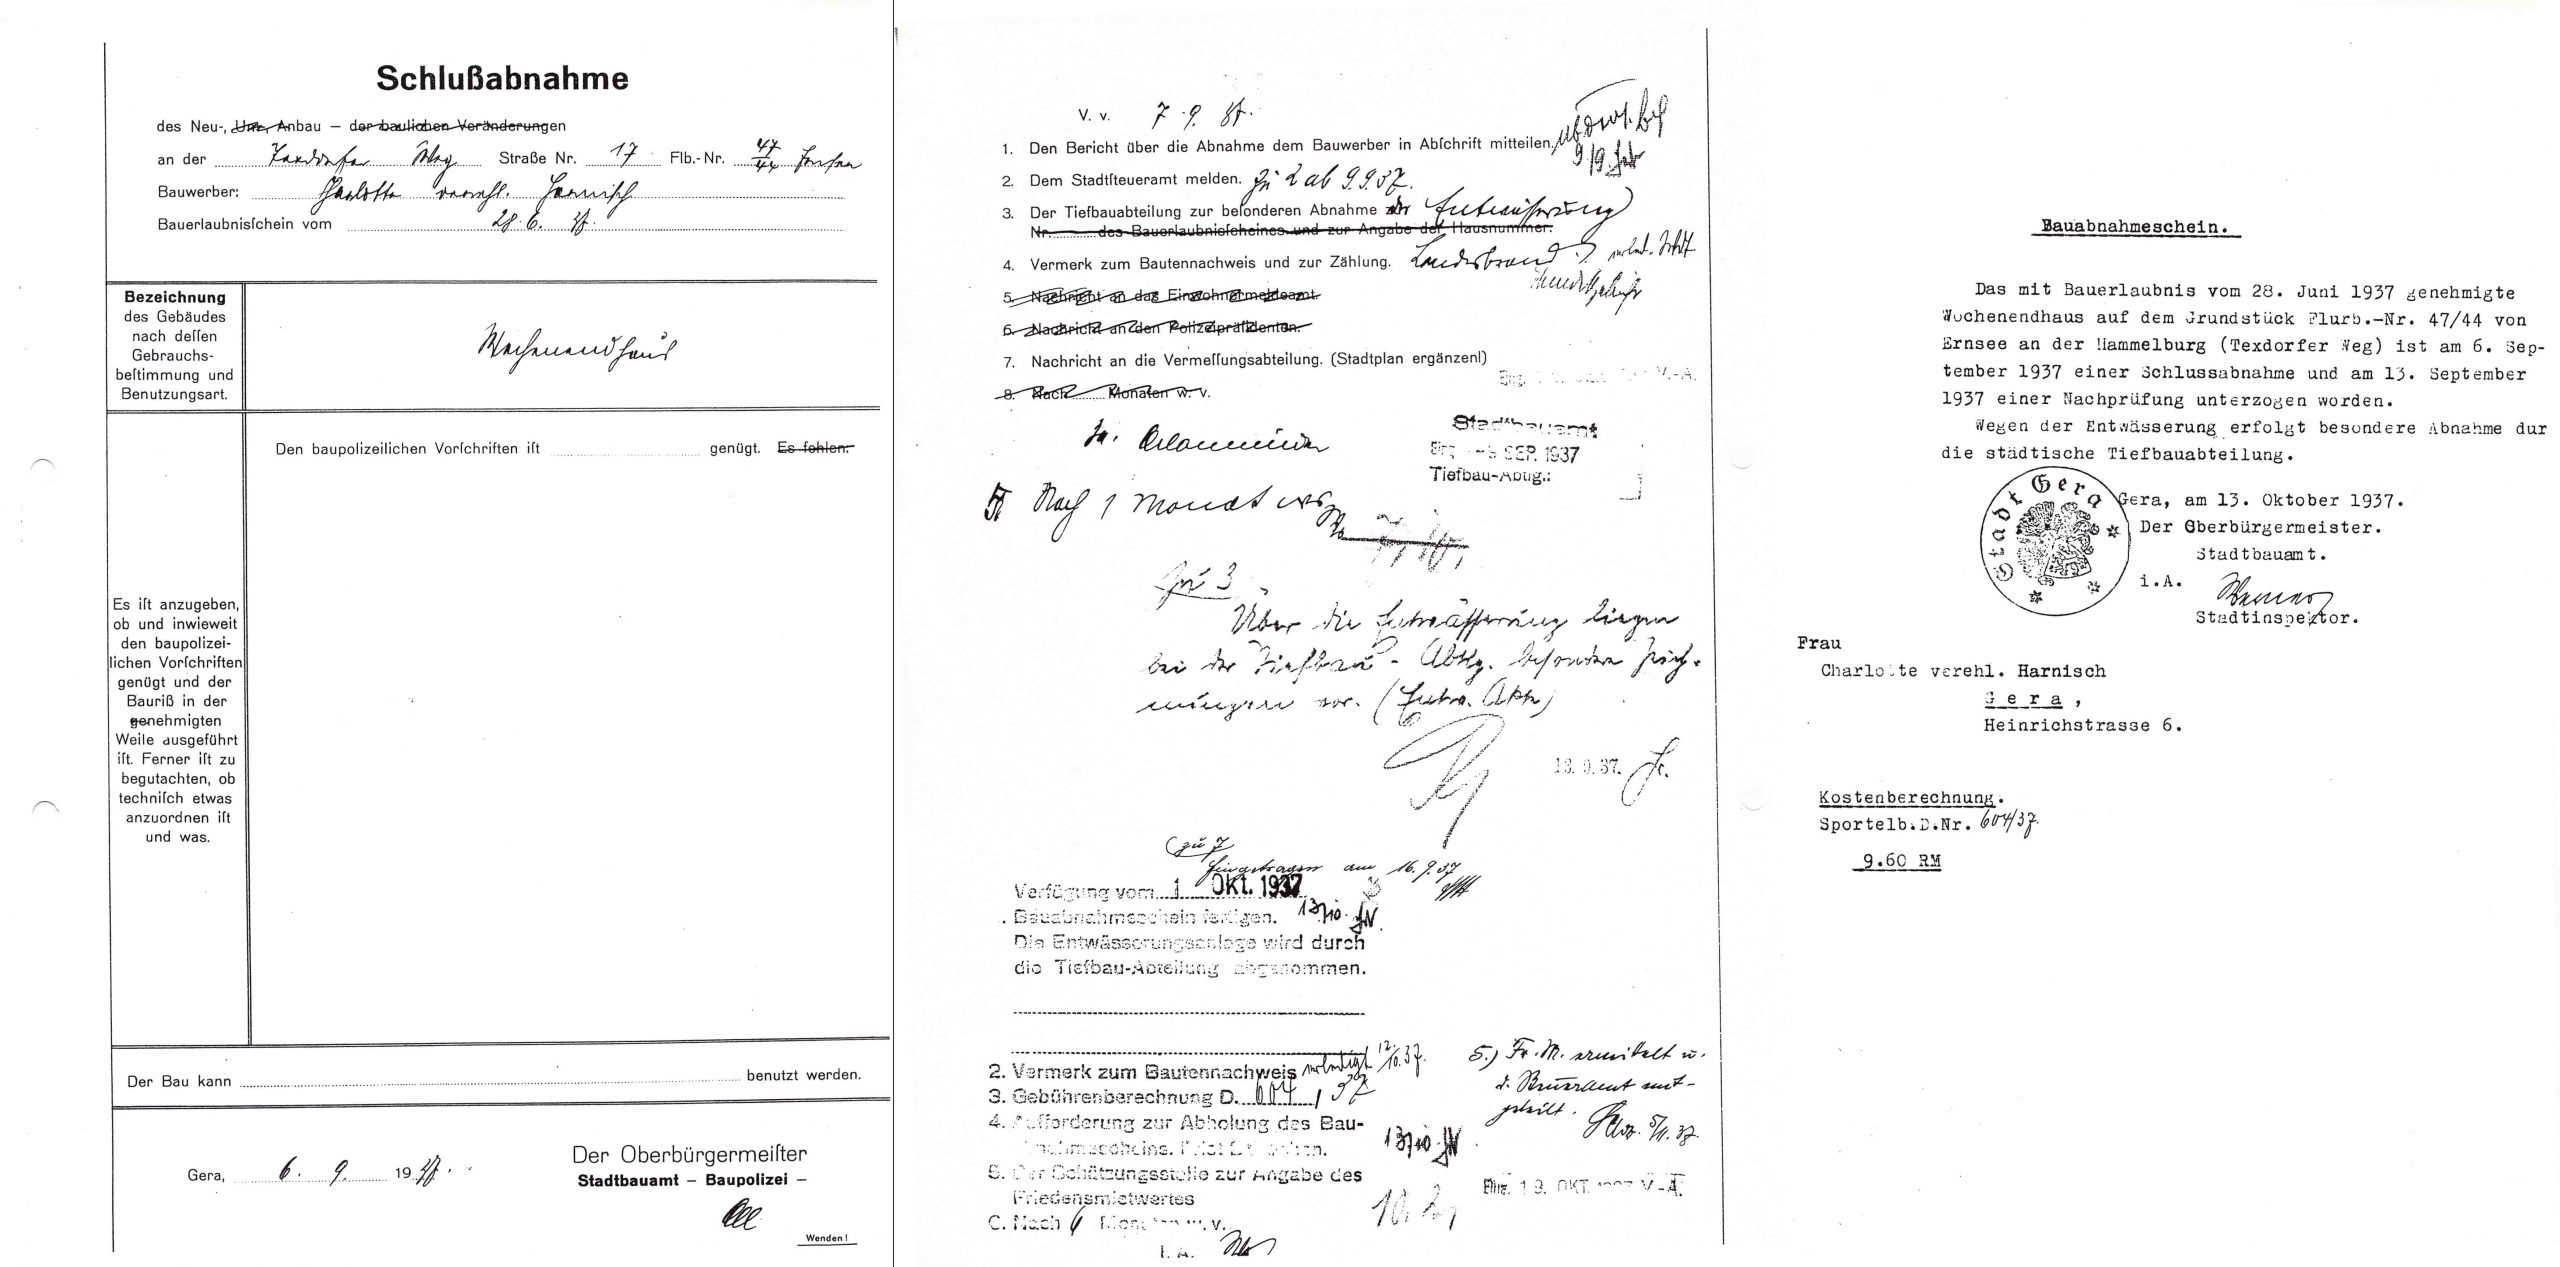 Schlußabnahme
des Neu-, Um-, Anbau – der baulichen Veränderungen
an der Texdorfer Weg Straße Nr. 17 Flb.-Nr. 47/44 Ernsee
Bauwerber: Charlotte verehl. Harnisch
Bauerlaubnisſchein vom 28. 6. 37.
Bezeichnung
des Gebäudes
nach deſſen
Gebrauchs-
beſtimmung und
Benutzungsart.
Wochenendhaus
Den baupolizeilichen Vorſchriften iſt genügt. Es fehlen:
Es iſt anzugeben,
ob und inwieweit
den baupolizei-
lichen Vorſchriften
genügt und der
Bauriß in der
genehmigten
Weiſe ausgeführt
iſt. Ferner iſt zu
begutachten, ob
techniſch etwas
anzuordnen iſt
und was.
Der Bau kann benutzt werden.
Gera, 6. 9. 1937.
Der Oberbürgermeiſter
Stadtbauamt – Baupolizei –
Wenden!
V. v. 7. 9. 37.
1. Den Bericht über die Abnahme dem Bauwerber in Abſchrift mitteilen.
9/9.
2. Dem Stadtſteueramt melden. Zu 2 ab 9.9.37.
3. Der Tiefbauabteilung zur beſonderen Abnahme der Entwässerung
Nr. des Bauerlaubnisſcheines und zur Angabe der Hausnummer.
4. Vermerk zum Bautennachweis und zur Zählung. Landesbrand
5. Nachricht an das Einwohnermeldeamt.
6. Nachricht an den Polizeipräſidenten.
7. Nachricht an die Vermeſſungsabteilung. (Stadtplan ergänzen!)
8. Nach Monaten w. v.
Stadtbauamt
Eing. -9. SEP. 1937
Tiefbau-Abtlg.:
Nach 1 Monat
Zu 3
Über die Entwässerung liegen
bei der Tiefbau-Abtlg. besondere Zeich-
nungen vor. (Entw. Akte)
13. 9. 37.
zu 7
Eingetragen am 16. 9. 37
Verfügung vom 1 OKT. 1937
. Bauabnahmeschein fertigen. 13/10.
Die Entwässerungsanlage wird durch
die Tiefbau-Abteilung abgenommen.
2. Vermerk zum Bautennachweis erledigt 12./10.37.
3. Gebührenberechnung D. 604 / 37
4. Aufforderung zur Abholung des Bau-
abnahmescheins. 13/10.
5. Der Schätzungsstelle zur Angabe des
Friedensmietwertes
6. Nach 6 Monaten w. v.
I. A.
5.) Fr. M. ermittelt u.
d. Steueramt mit-
geteilt. 5/11. 37.
Eing. 19. OKT. 1937 V.-A.
Bauabnahmeschein.
Das mit Bauerlaubnis vom 28. Juni 1937 genehmigte
Wochenendhaus auf dem Grundstück Flurb.-Nr. 47/44 von
Ernsee an der Hammelburg (Texdorfer Weg) ist am 6. Sep-
tember 1937 einer Schlussabnahme und am 13. September
1937 einer Nachprüfung unterzogen worden.
Wegen der Entwässerung erfolgt besondere Abnahme dur
die städtische Tiefbauabteilung.
Stadt Gera
Gera, am 13. Oktober 1937.
Der Oberbürgermeister.
Stadtbauamt.
i.A.
Stadtinspektor.
Frau
Charlotte verehl. Harnisch
Gera,
Heinrichstrasse 6.
Kostenberechnung.
Sportelb.D.Nr. 604/37.
9.60 RM